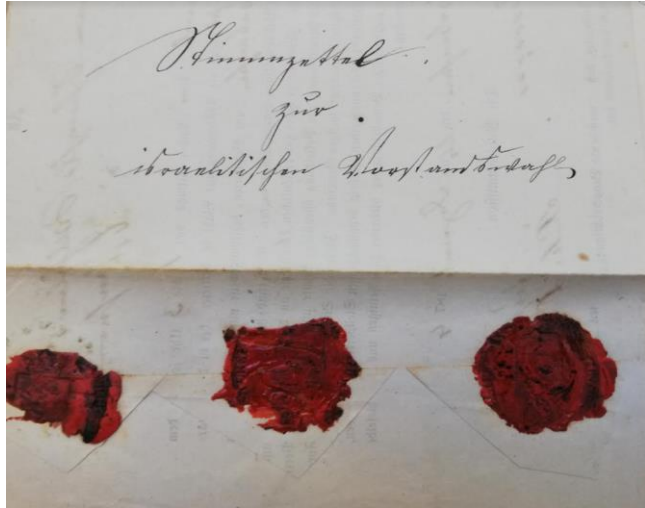 Stimmzettel
zur
israelitischen Vorstandswahl